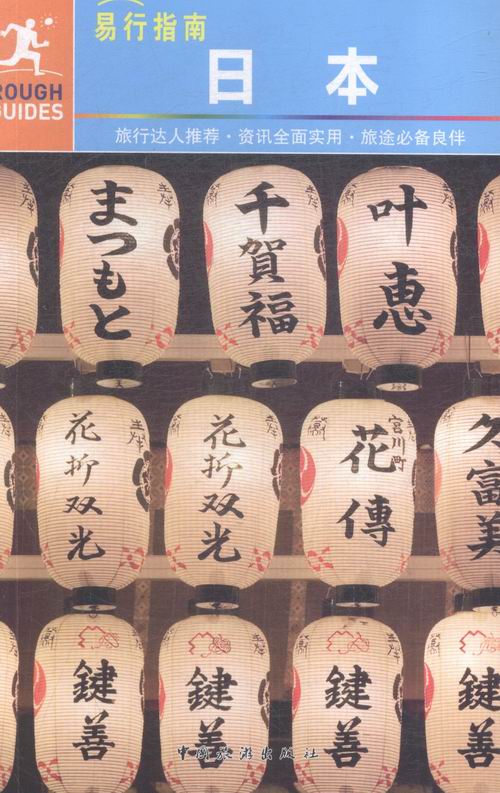 ROUGH
GUIDES
易行指南
日本
旅行达人推荐·资讯全面实用·旅途必备良伴
まつもと
千賀福
叶恵
花柳双光
花柳双光
宮川町
花傳
久富美
鍵善
鍵善
鍵善
鍵善
中国旅游出版社